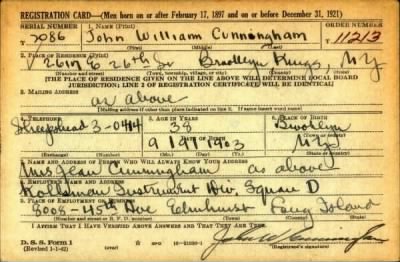 REGISTRATION CARD—(Men born on or after February 17, 1897 and on or before December 31, 1921)
SERIAL NUMBER 1. NAME (Print) ORDER NUMBER
John William Cunningham 11213
(First) (Middle) (Last)
2. PLACE OF RESIDENCE (Print)
2617 E 26th St Brooklyn Kings, NY
(Number and street) (Town, township, village, or city) (County) (State)
[THE PLACE OF RESIDENCE GIVEN ON THE LINE ABOVE WILL DETERMINE LOCAL BOARD
JURISDICTION; LINE 2 OF REGISTRATION CERTIFICATE WILL BE IDENTICAL]
3. MAILING ADDRESS
as above
[Mailing address if other than place indicated on line 2. If same insert word same]
4. TELEPHONE 5. AGE IN YEARS 6. PLACE OF BIRTH
38 Brooklyn
DATE OF BIRTH
NY
7. NAME AND ADDRESS OF PERSON WHO WILL ALWAYS KNOW YOUR ADDRESS
Mrs Jean Cunningham as above
8. EMPLOYER'S NAME AND ADDRESS
Kollsman Instrument Div. Square D
8008-45th Ave Elmhurst Long Island
(Number and street or R. F. D. number) (Town) (County) (State)
I AFFIRM THAT I HAVE VERIFIED ABOVE ANSWERS AND THAT THEY ARE TRUE.
D. S. S. Form 1
(Revised 1-1-42)
John W Cunningham